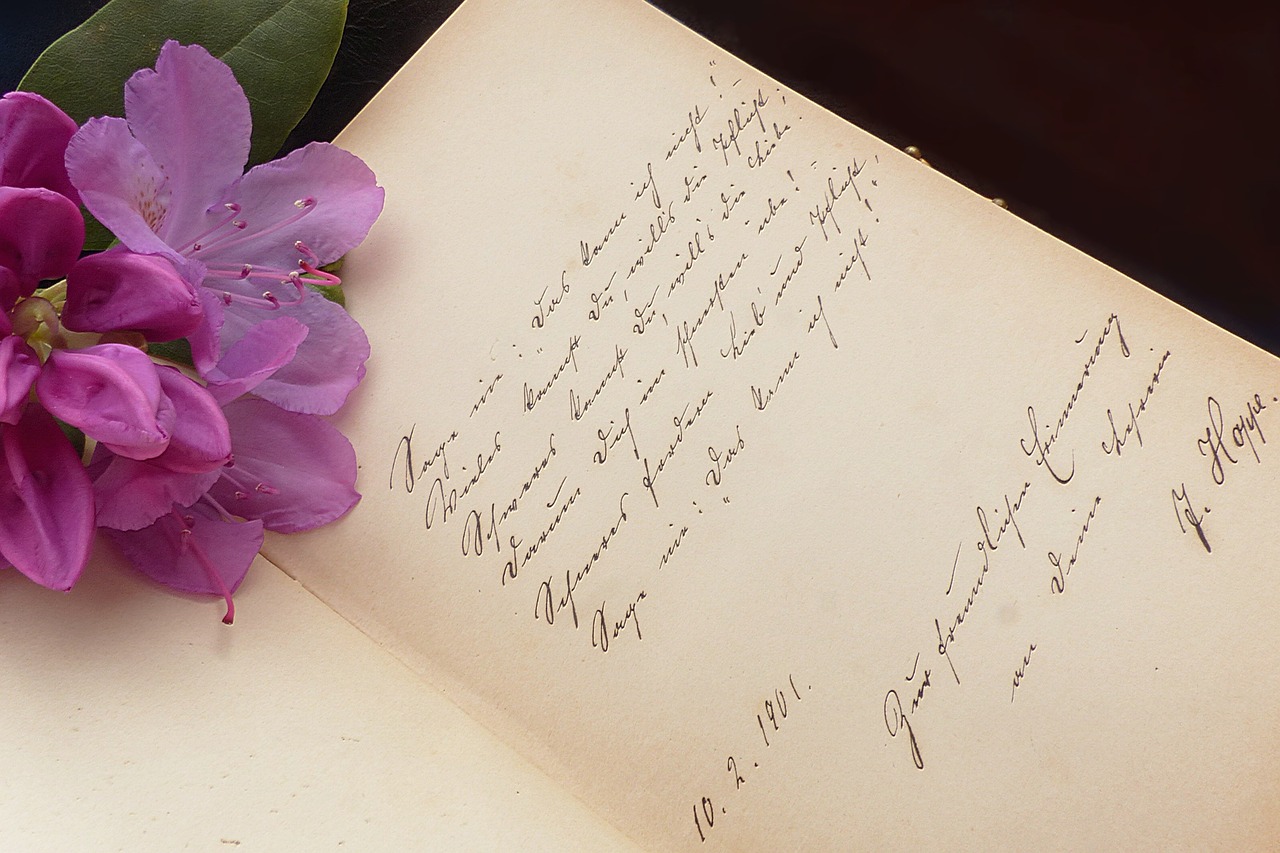 Sage nie: „Das kann ich nicht!“
Vieles kannst Du, will's die Pflicht!
Schweres kannst Du, will's die Liebe.
Darum Dich im Schwersten übe!
Schweres fordern Lieb' und Pflicht;
Sage nie: „Das kann ich nicht!“
Zur freundlichen Erinnerung
an Deine Lehrerin
J. Hoppe.
10. 2. 1901.